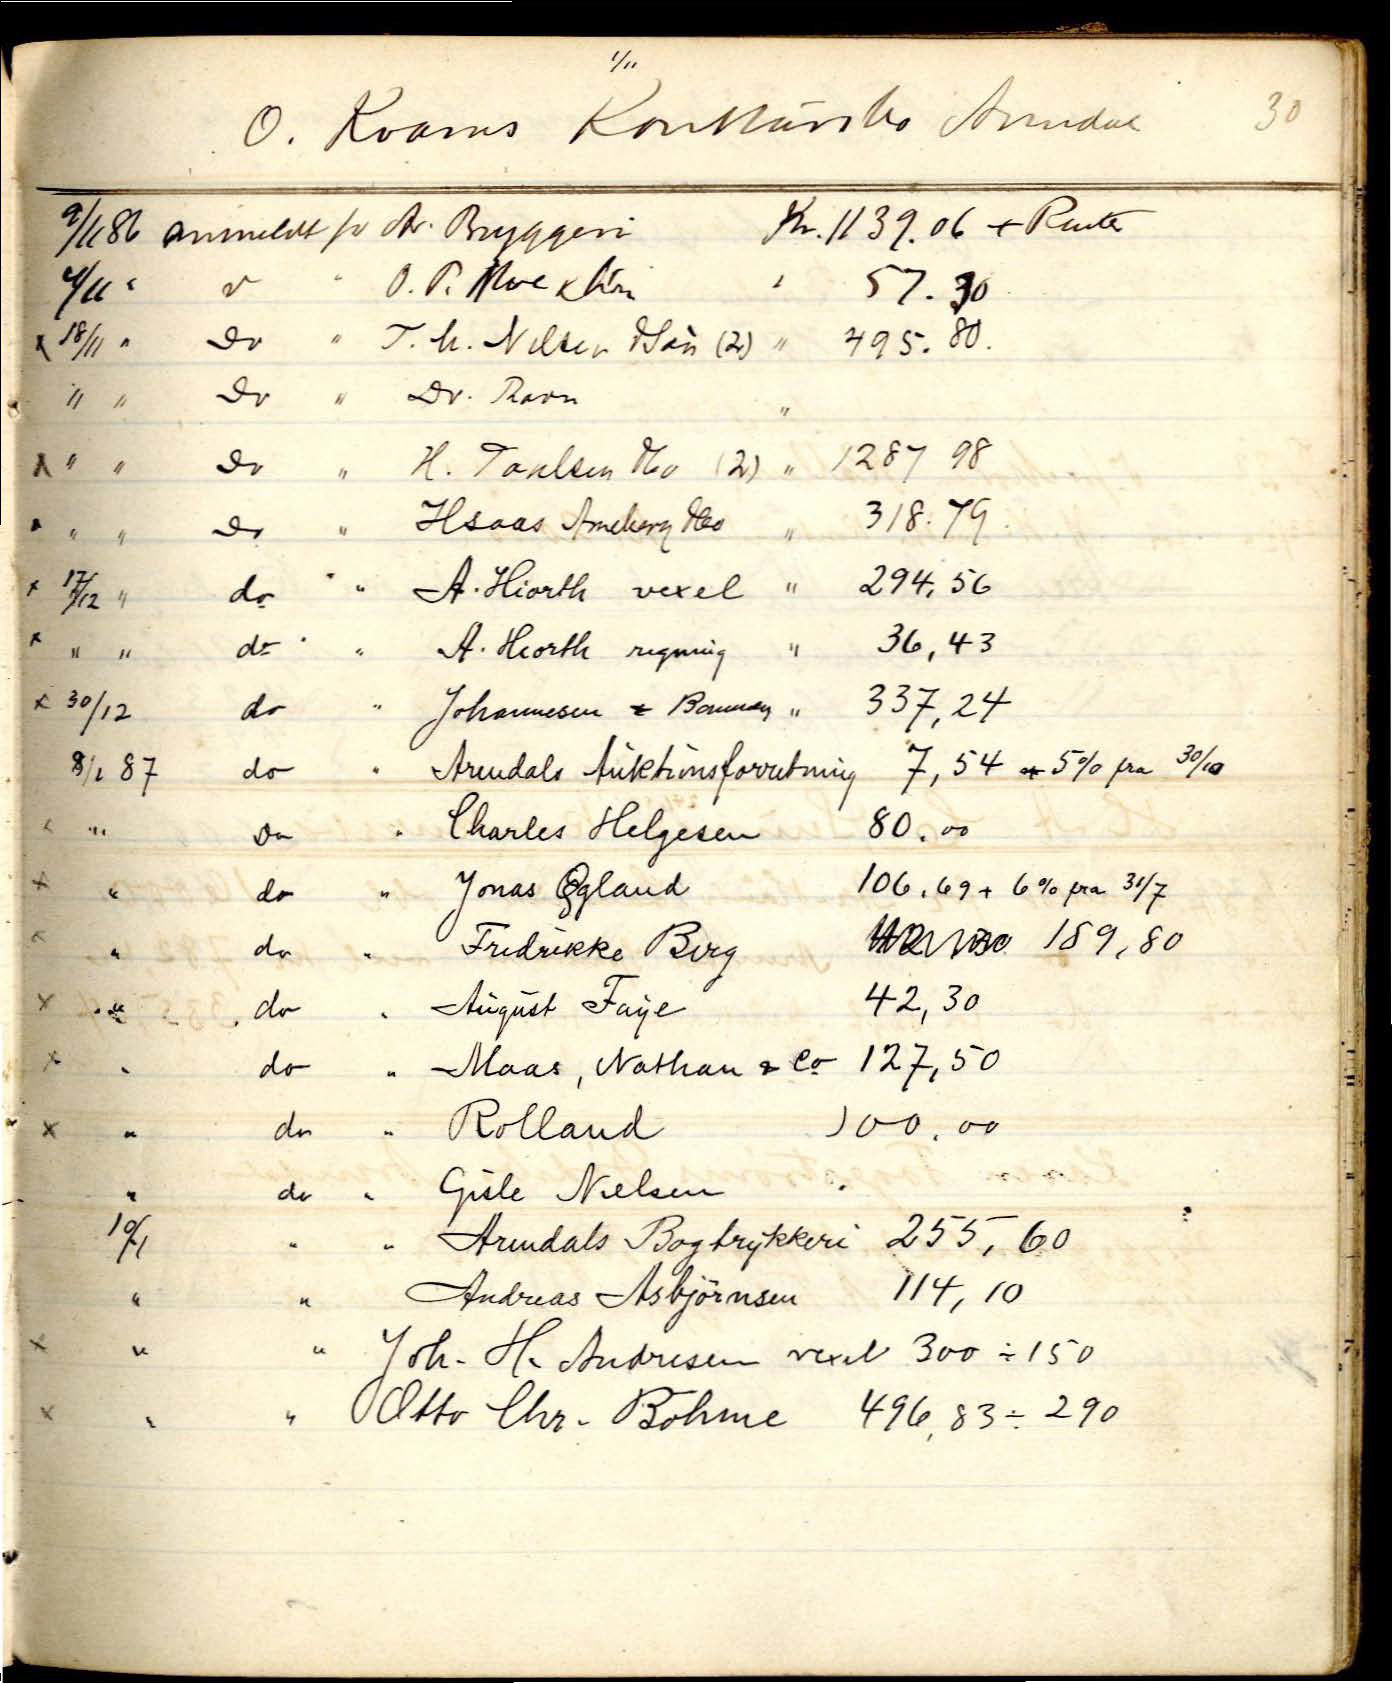 1/11
O. Kvams Konkursbo Arendal 30
9/11 86 anmeldt for Ar. Bryggeri Kr. 1139.06 + Renter
4/11 " " " O. P. Moe & Sön " 57.30
x 18/11 " Do " T. M. Nilsen (2) " 495.80.
" " Do " Dr. Ravn "
x " " Do " H. Paulsen & Co (2) " 1287 98
x " " Do " Haas Ameberg & Co " 318.79.
x 17/12 " do " A. Hiorth vexel " 294,56
x " " do " A. Hiorth regning " 36,43
x 30/12 do " Johannesen & " 337,24
8/1 87 do " Arendals Auktionsforretning 7,54 + 5% fra 30/10
x " Do " Charles Helgesen 80.00
x " do " Jonas Øgland 106.69 + 6% fra 31/7
x " do " Fredrikke Berg 189,80
x " do " August Faye 42,30
x " do " Maas, Nathan & Co 127,50
x " do " Rolland 100.00
" do " Gisle Nielsen
10/1 " " Arendals Bogtrykkeri 255,60
" " Andreas Asbjörnsen 114,10
x " " Joh. H. Andresen vexel 300 ÷ 150
x " " Otto Chr. Bohme 496,83 ÷ 290